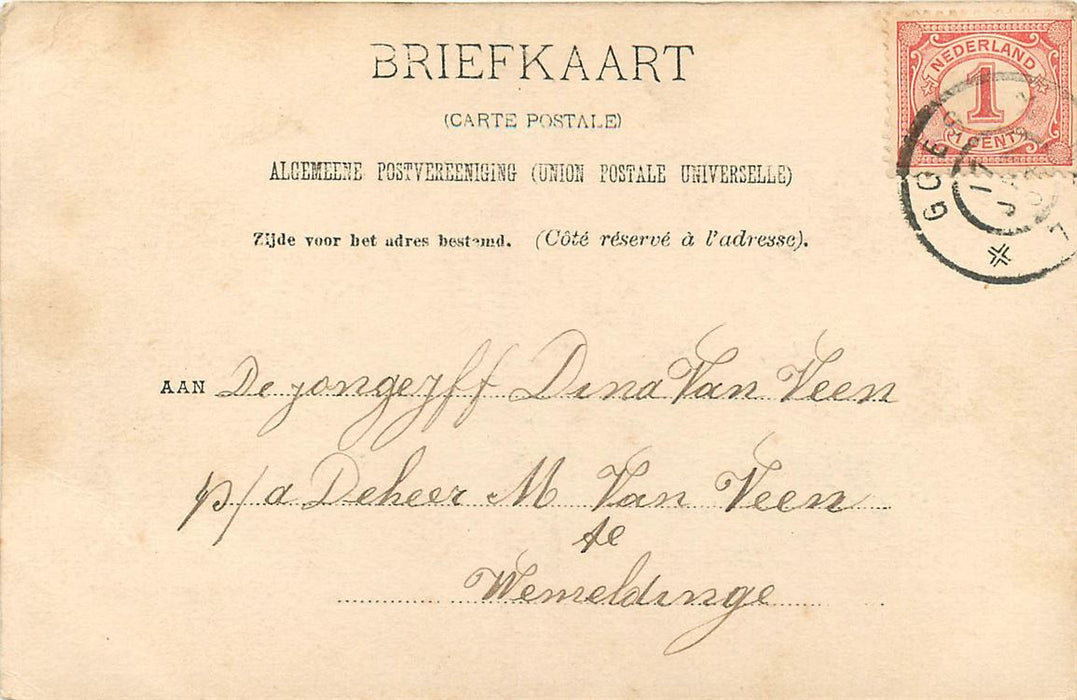 BRIEFKAART
(CARTE POSTALE)
ALGEMEENE POSTVEREENIGING (UNION POSTALE UNIVERSELLE)
Zijde voor het adres bestemd. (Côté réservé à l'adresse).
NEDERLAND
1
CENT
GOES
17
JAN
AAN De jongejff Dina Van Veen
p/a Deheer M Van Veen
te
Wemeldinge